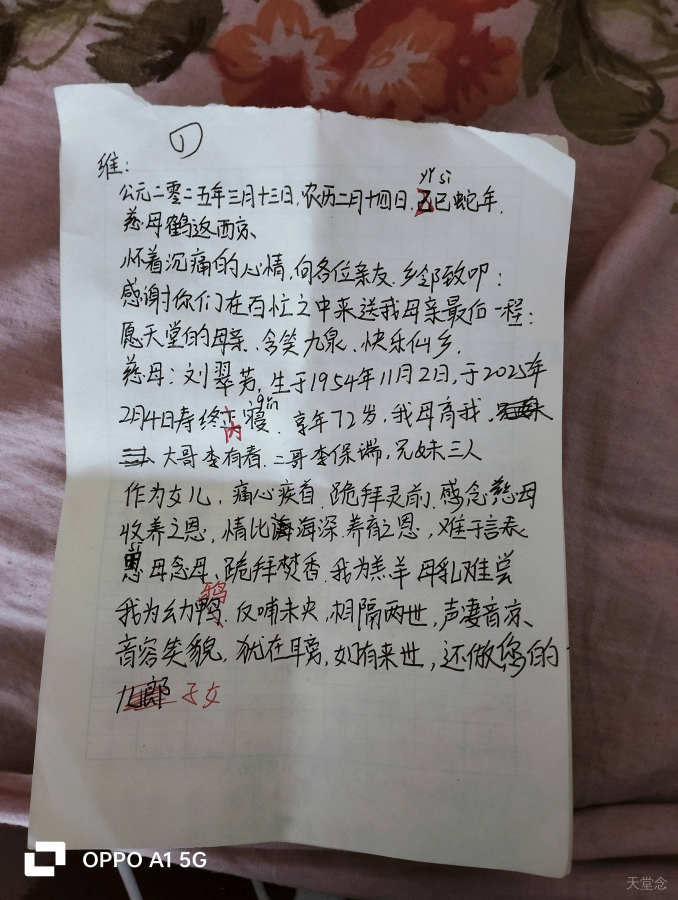 ①
维：
yǐ sì
公元二零二五年三月十三日，农历二月十四日，乙巳蛇年，
慈母鹤返西京、
怀着沉痛的心情，向各位亲友、乡邻致叩：
感谢你们在百忙之中来送我母亲最后一程：
愿天堂的母亲、含笑九泉、快乐仙乡，
慈母：刘翠芳，生于1954年11月2日，于2025年
qǐn
2月4日寿终内寝、享年72岁，我母育我、
大哥李有春、二哥李保瑞，兄妹三人
作为女儿，痛心疾首、跪拜灵前，感念慈母
收养之恩，情比海深、养育之恩，难于言表
思母念母、跪拜焚香、我为羔羊 母乳难尝
我为幼鸦、反哺未央，相隔两世，声凄音凉、
音容笑貌，犹在耳旁，如有来世，还做您的
子女
OPPO A1 5G
天堂念